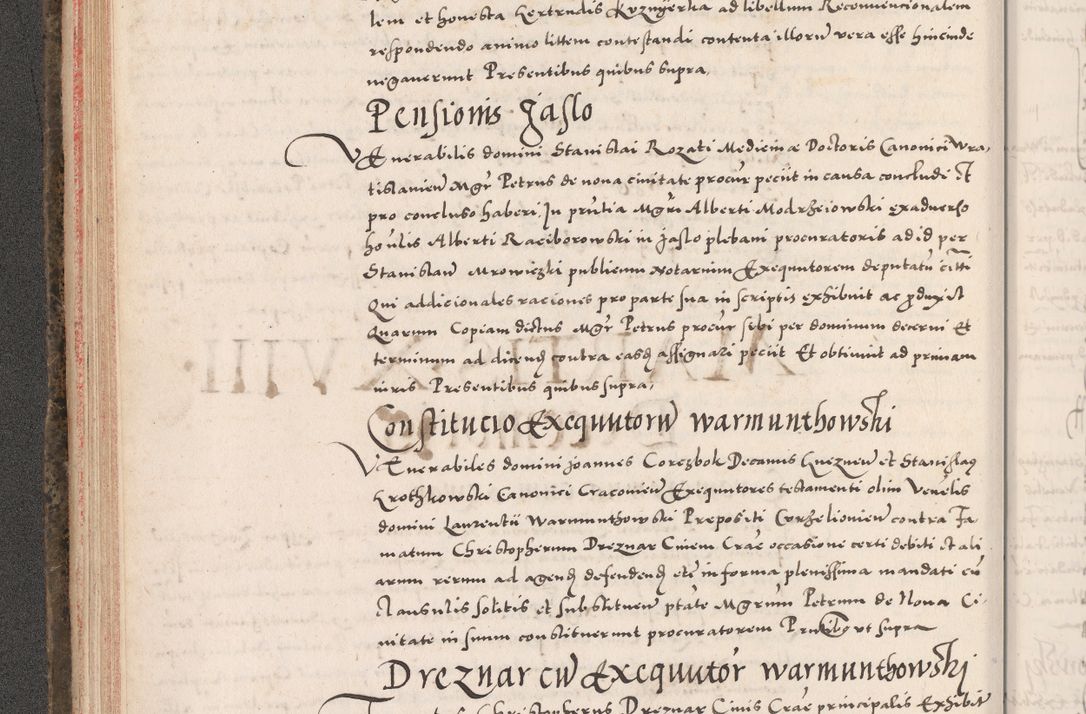 lem et honesta Gertrudis Krznyerka ad libellum Reconvencionalem
respondendo animo littem contestandi contenta illorũ vera esse hincinde
negaverunt Presentibus quibus supra,
Pensionis Jaslo
VEnerabilis domini Stanislai Rozati Medicinæ Doctoris Canonici Wra,
tislavieñ Mgr̃ Petrus de nova civitate procur̃ peciit in causa concludi Et
pro concluso haberi. In prñtia Mgri Alberti Modrzeiowski exadverso
hoñlis Alberti Raciborowski in Jaslo plebani procuratoris ad id per
Stanislaũ Mrowiczki publicum Notarium Exequutorem deputatũ citti
Qui addicionales raciones pro parte sua in scriptis exhibuit ac pduxit
Quarum Copiam dictus Mgr̃ Petrus procur̃ sibi per dominum decerni Et
terminum ad dicend contra easd assignari peciit Et obtinuit ad primam
iuris Presentibus quibus supra,
Constitucio Exequutorũ Warmunthowski
VEnerabiles domini Joannes Coreszbok Decanus Gnezneñ et Stanislaus
Krothkowski Canonici Cracovieñ Exequutores testamenti olim Veñelis
domini Laurentii Warmunthowski Prepositi Curzelovieñ contra Fa
matum Christopherum Dreznar Civem Craẽ occasione certi debiti et ali
arum rerum ad agend defendend etc̃ in forma plenissima mandati cũ
clausulis solitis et substitueñ ptate Mgrum Petrum de Nova Ci,
vitate in suum constituerunt procuratorem Prntibus ut supra
Dreznar cũ Exequutor̃ Warmunthowski
Christopherus Dreznar Civis Craẽ principalis Exhibit